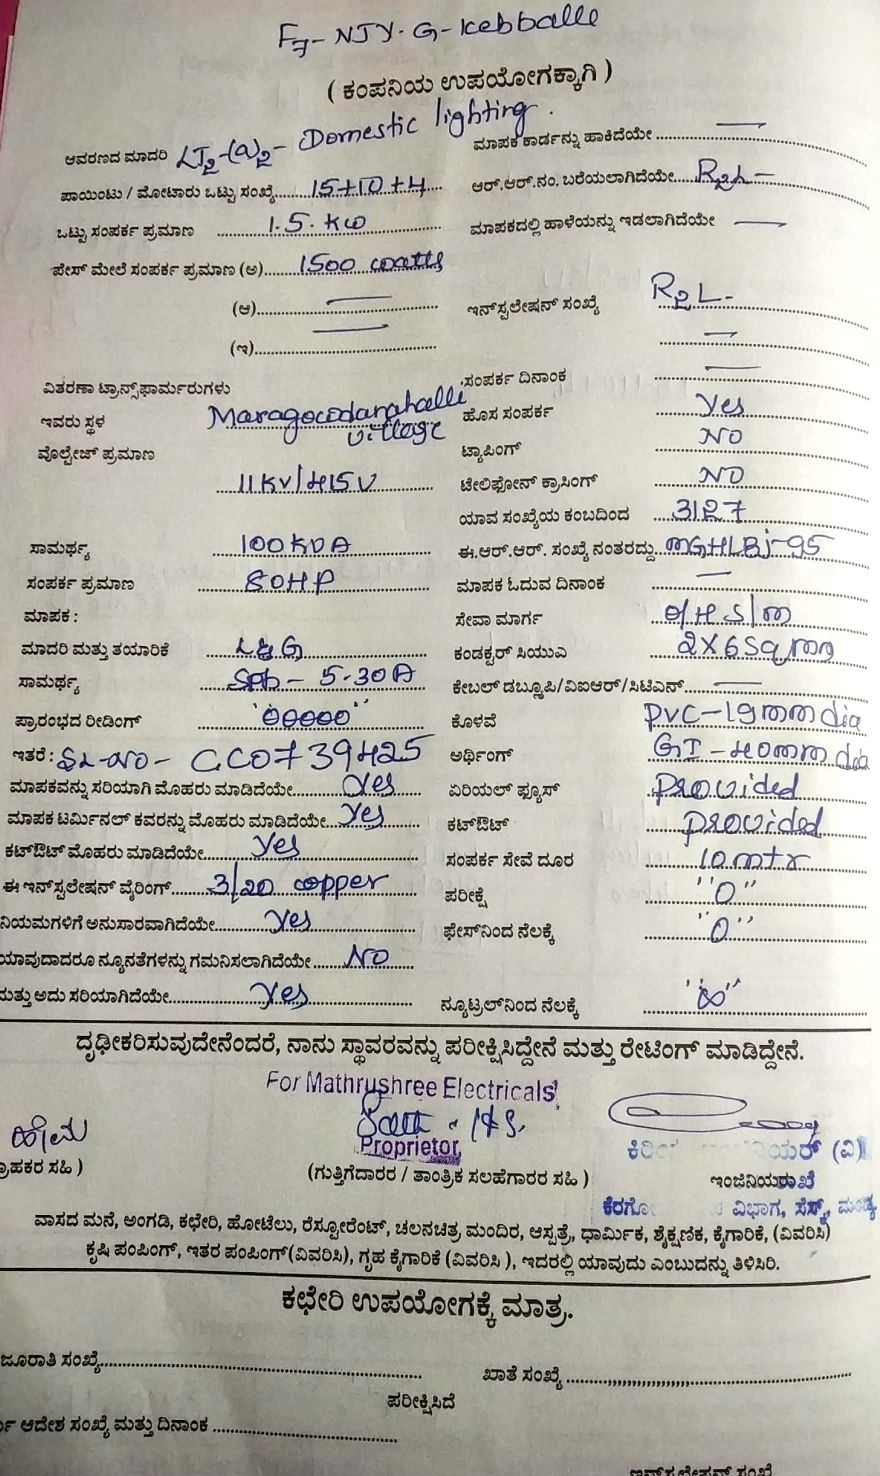 F7- NJY. G-Kebballi
( ಕಂಪನಿಯ ಉಪಯೋಗಕ್ಕಾಗಿ )
ಆವರಣದ ಮಾದರಿ LT2-(a)2- Domestic lighting.
ಮಾಪಕ ಕಾರ್ಡನ್ನು ಹಾಕಿದೆಯೇ —
ಪಾಯಿಂಟು / ಮೋಟಾರು ಒಟ್ಟು ಸಂಖ್ಯೆ 15+10+4
ಆರ್.ಆರ್.ನಂ. ಬರೆಯಲಾಗಿದೆಯೇ R2L-
ಒಟ್ಟು ಸಂಪರ್ಕ ಪ್ರಮಾಣ 1.5.KW
ಮಾಪಕದಲ್ಲಿ ಹಾಳೆಯನ್ನು ಇಡಲಾಗಿದೆಯೇ —
ಪೇಸ್ ಮೇಲೆ ಸಂಪರ್ಕ ಪ್ರಮಾಣ (ಅ) 1500 watts
(ಆ) —
ಇನ್‌ಸ್ಟಲೇಷನ್ ಸಂಖ್ಯೆ R2L-
(ಇ) —
—
ವಿತರಣಾ ಟ್ರಾನ್ಸ್‌ಫಾರ್ಮರುಗಳು
ಸಂಪರ್ಕ ದಿನಾಂಕ —
ಇವರು ಸ್ಥಳ Maragowdanahalli village
ಹೊಸ ಸಂಪರ್ಕ Yes
ವೊಲ್ಟೇಜ್ ಪ್ರಮಾಣ
ಟ್ಯಾಪಿಂಗ್ NO
11KV/415V
ಟೇಲಿಫೋನ್ ಕ್ರಾಸಿಂಗ್ NO
ಯಾವ ಸಂಖ್ಯೆಯ ಕಂಬದಿಂದ 3127
ಸಾಮರ್ಥ್ಯ 100KVA
ಈ.ಆರ್.ಆರ್. ಸಂಖ್ಯೆ ನಂತರದ್ದು MGHLBJ-95
ಸಂಪರ್ಕ ಪ್ರಮಾಣ 80HP
ಮಾಪಕ ಓದುವ ದಿನಾಂಕ —
ಮಾಪಕ :
ಸೇವಾ ಮಾರ್ಗ O/H S/M
ಮಾದರಿ ಮತ್ತು ತಯಾರಿಕೆ L&G
ಕಂಡಕ್ಟರ್ ಸಿಯುಎ 2X6Sqmm
ಸಾಮರ್ಥ್ಯ Sph - 5-30A
ಕೇಬಲ್ ಡಬ್ಲ್ಯೂಪಿ/ವಿಐಆರ್/ಸಿಟಿಎಸ್ —
ಪ್ರಾರಂಭದ ರೀಡಿಂಗ್ "00000"
ಕೊಳವೆ PVC-19mm dia
ಇತರೆ : SL-NO- CC0739425
ಅರ್ಥಿಂಗ್ GI-40mm dia
ಮಾಪಕವನ್ನು ಸರಿಯಾಗಿ ಮೊಹರು ಮಾಡಿದೆಯೇ Yes
ಏರಿಯಲ್ ಫ್ಯೂಸ್ Provided
ಮಾಪಕ ಟರ್ಮಿನಲ್ ಕವರನ್ನು ಮೊಹರು ಮಾಡಿದೆಯೇ Yes
ಕಟ್‌ಔಟ್ provided
ಕಟ್‌ಔಟ್ ಮೊಹರು ಮಾಡಿದೆಯೇ Yes
ಸಂಪರ್ಕ ಸೇವೆ ದೂರ 10mtr
ಈ ಇನ್‌ಸ್ಟಲೇಷನ್ ವೈರಿಂಗ್ 3/20 copper
ಪರೀಕ್ಷೆ "0"
ನಿಯಮಗಳಿಗೆ ಅನುಸಾರವಾಗಿದೆಯೇ Yes
ಫೇಸ್‌ನಿಂದ ನೆಲಕ್ಕೆ "0"
ಯಾವುದಾದರೂ ನ್ಯೂನತೆಗಳನ್ನು ಗಮನಿಸಲಾಗಿದೆಯೇ NO
ಮತ್ತು ಅದು ಸರಿಯಾಗಿದೆಯೇ Yes
ನ್ಯೂಟ್ರಲ್‌ನಿಂದ ನೆಲಕ್ಕೆ "∞"
ದೃಢೀಕರಿಸುವುದೇನೆಂದರೆ, ನಾನು ಸ್ಥಾವರವನ್ನು ಪರೀಕ್ಷಿಸಿದ್ದೇನೆ ಮತ್ತು ರೇಟಿಂಗ್ ಮಾಡಿದ್ದೇನೆ.
For Mathrushree Electricals
ಹೇಮ
Proprietor
(ವಿ)
ಗ್ರಾಹಕರ ಸಹಿ )
(ಗುತ್ತಿಗೆದಾರರ / ತಾಂತ್ರಿಕ ಸಲಹೆಗಾರರ ಸಹಿ )
ಇಂಜಿನಿಯರು
ವಿಭಾಗ, ಸೆಸ್ಕ್, ಮಂಡ್ಯ
ವಾಸದ ಮನೆ, ಅಂಗಡಿ, ಕಛೇರಿ, ಹೋಟೆಲು, ರೆಸ್ಟೋರೆಂಟ್, ಚಲನಚಿತ್ರ ಮಂದಿರ, ಆಸ್ಪತ್ರೆ, ಧಾರ್ಮಿಕ, ಶೈಕ್ಷಣಿಕ, ಕೈಗಾರಿಕೆ, (ವಿವರಿಸಿ)
ಕೃಷಿ ಪಂಪಿಂಗ್, ಇತರ ಪಂಪಿಂಗ್(ವಿವರಿಸಿ), ಗೃಹ ಕೈಗಾರಿಕೆ (ವಿವರಿಸಿ ), ಇದರಲ್ಲಿ ಯಾವುದು ಎಂಬುದನ್ನು ತಿಳಿಸಿರಿ.
ಕಛೇರಿ ಉಪಯೋಗಕ್ಕೆ ಮಾತ್ರ.
ಜೂರಾತಿ ಸಂಖ್ಯೆ
ಖಾತೆ ಸಂಖ್ಯೆ
ಪರೀಕ್ಷಿಸಿದೆ
ಆದೇಶ ಸಂಖ್ಯೆ ಮತ್ತು ದಿನಾಂಕ